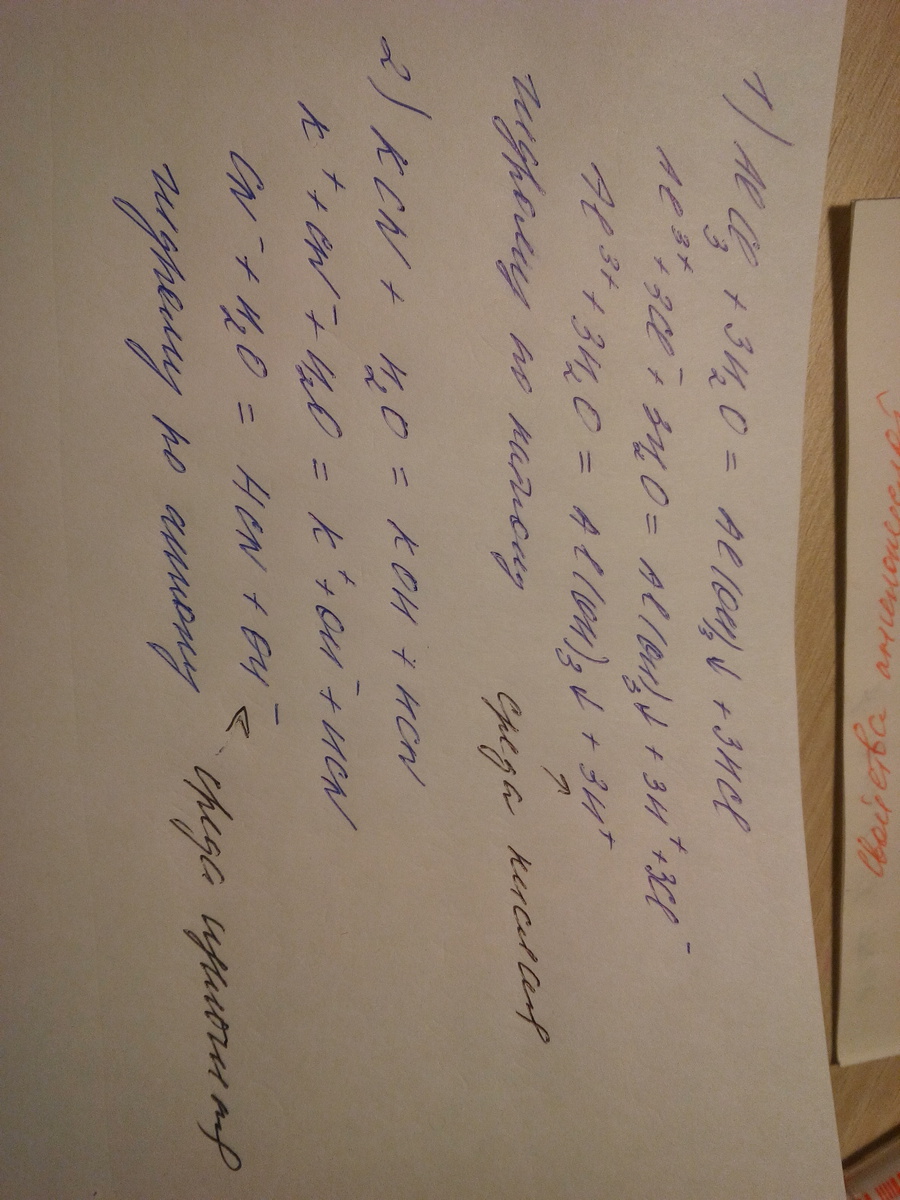 1) AlCl₃ + 3H₂O = Al(OH)₃↓ + 3HCl
Al³⁺ + 3Cl⁻ + 3H₂O = Al(OH)₃↓ + 3H⁺ + 3Cl⁻
Al³⁺ + 3H₂O = Al(OH)₃↓ + 3H⁺
гидролиз по катиону среда кислая
2) KCN + H₂O = KOH + HCN
K⁺ + CN⁻ + H₂O = K⁺ + OH⁻ + HCN
CN⁻ + H₂O = HCN + OH⁻
гидролиз по аниону среда щелочная
свойства